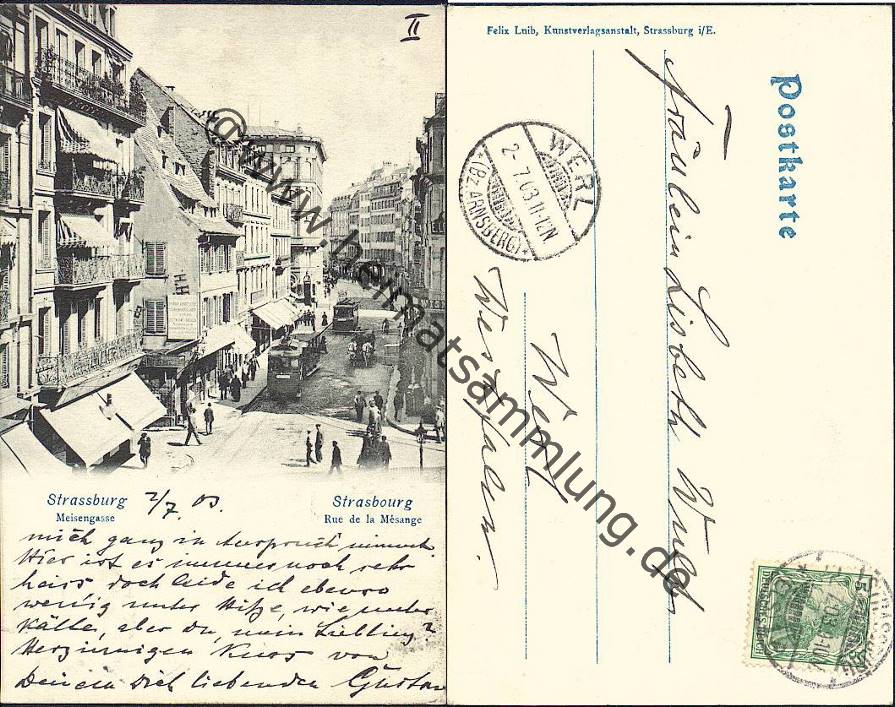 II
Strassburg
Meisengasse
2/7. 03.
Strasbourg
Rue de la Mésange
mich ganz in Anspruch nimmt.
Hier ist es immer noch sehr
heiss doch leide ich ebenso
wenig unter Hitze, wie unter
Kälte, aber Du, mein Liebling?
Herzinnigen Kuss von
Deinem Dich liebenden Gustav
Felix Luib, Kunstverlagsanstalt, Strassburg i/E.
Postkarte
Fräulein Lisbeth
Werl
Westfalen.
WERL
2-7.03.11-12N
*(BZ. ARNSBERG)*
5
DEUTSCHES REICH
www.heimatsammlung.de